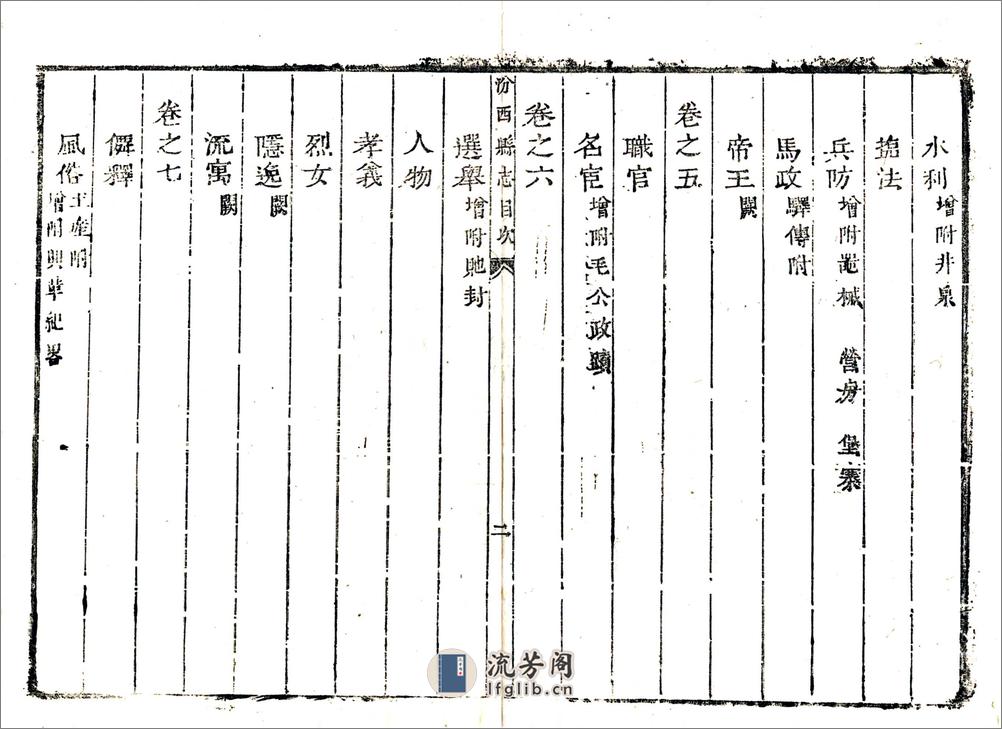 水利增附井泉
塩法
兵防增附器械 營房 堡寨
馬政驛傳附
帝王闕
卷之五
職官
名宦增附毛公政蹟
卷之六
汾西縣志目次 二
選舉增附貤封
人物
孝義
烈女
隱逸闕
流寓闕
卷之七
僊釋
風俗土産附
增附興革紀畧
流芳阁
lfglib.cn